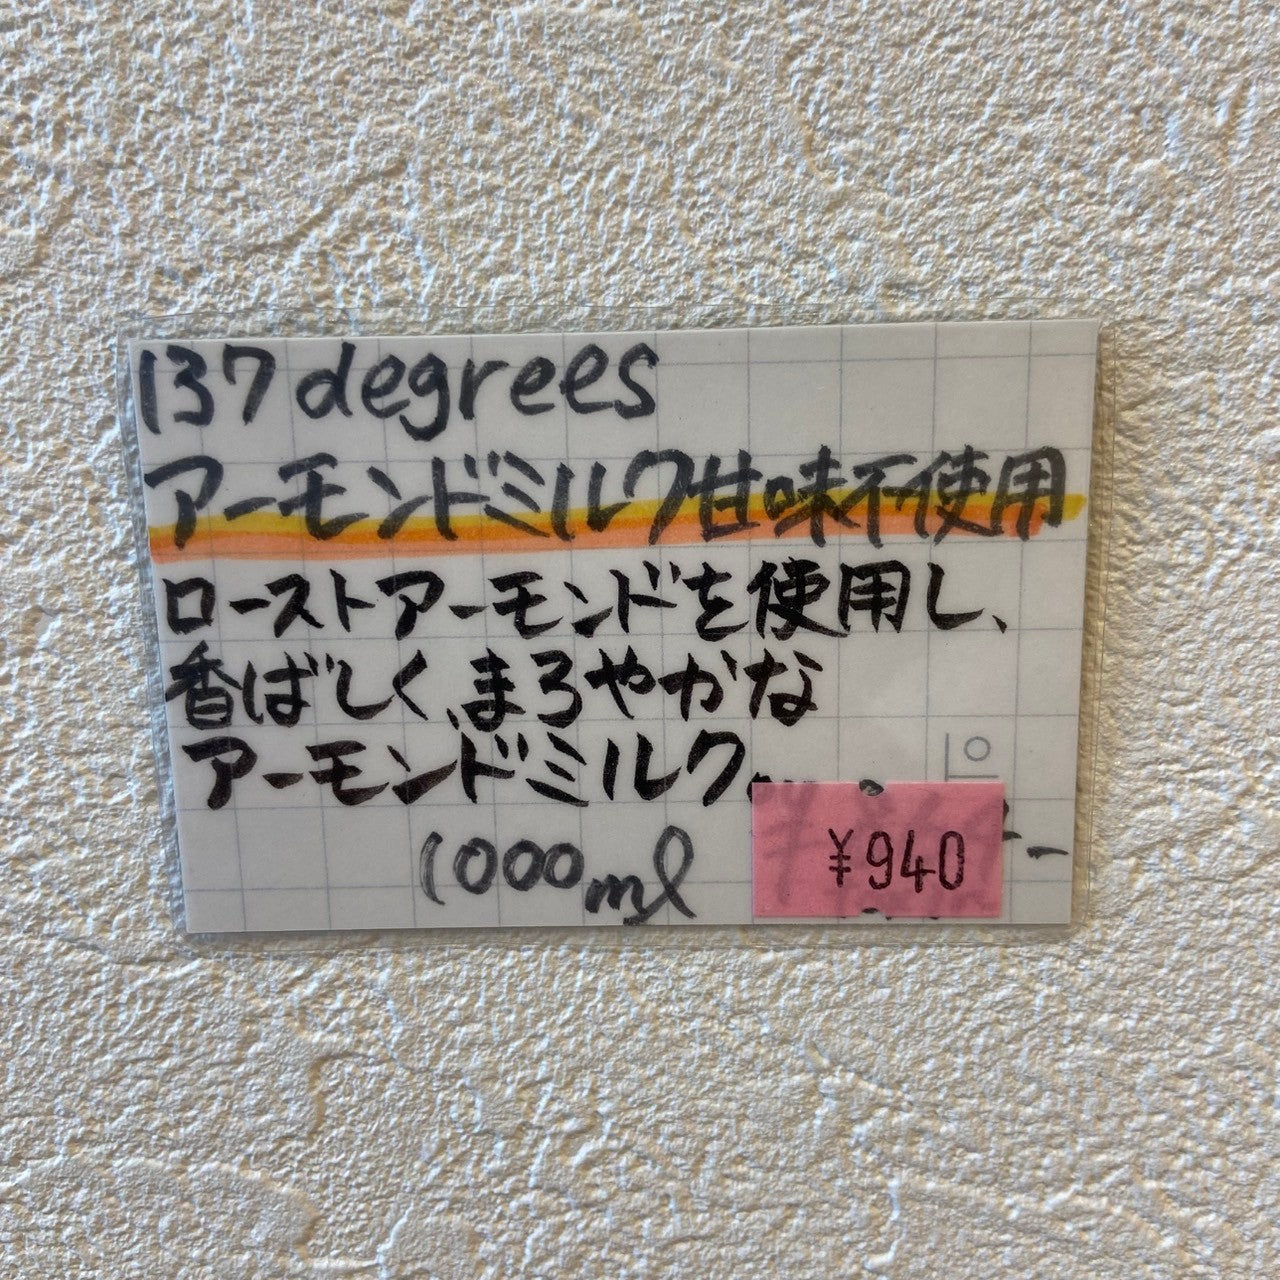 137 degrees
アーモンドミルク甘味不使用
ローストアーモンドを使用し、
香ばしく、まろやかな
アーモンドミルク
1000ml
¥940